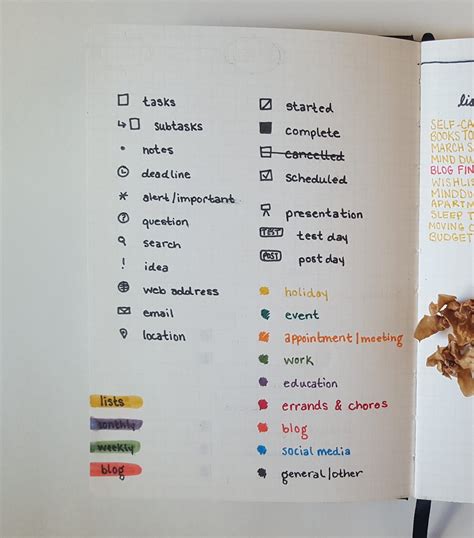 tasks
subtasks
notes
deadline
alert/important
question
search
! idea
web address
email
location
lists
monthly
weekly
blog
started
complete
cancelled
scheduled
presentation
TEST test day
POST post day
holiday
event
appointment/meeting
work
education
errands & chores
blog
social media
general/other
SELF-CA
BOOKS TO
MARCH S
MIND DU
BLOG FIN
WISHLIS
MINDDU
APARTM
SLEEP T
MOVING C
BUDGET